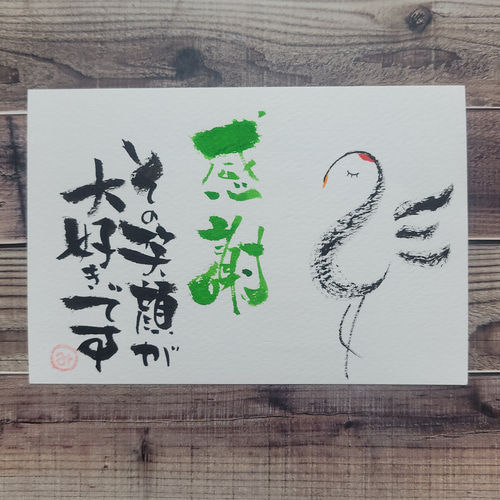 感謝
その笑顔が
大好きです